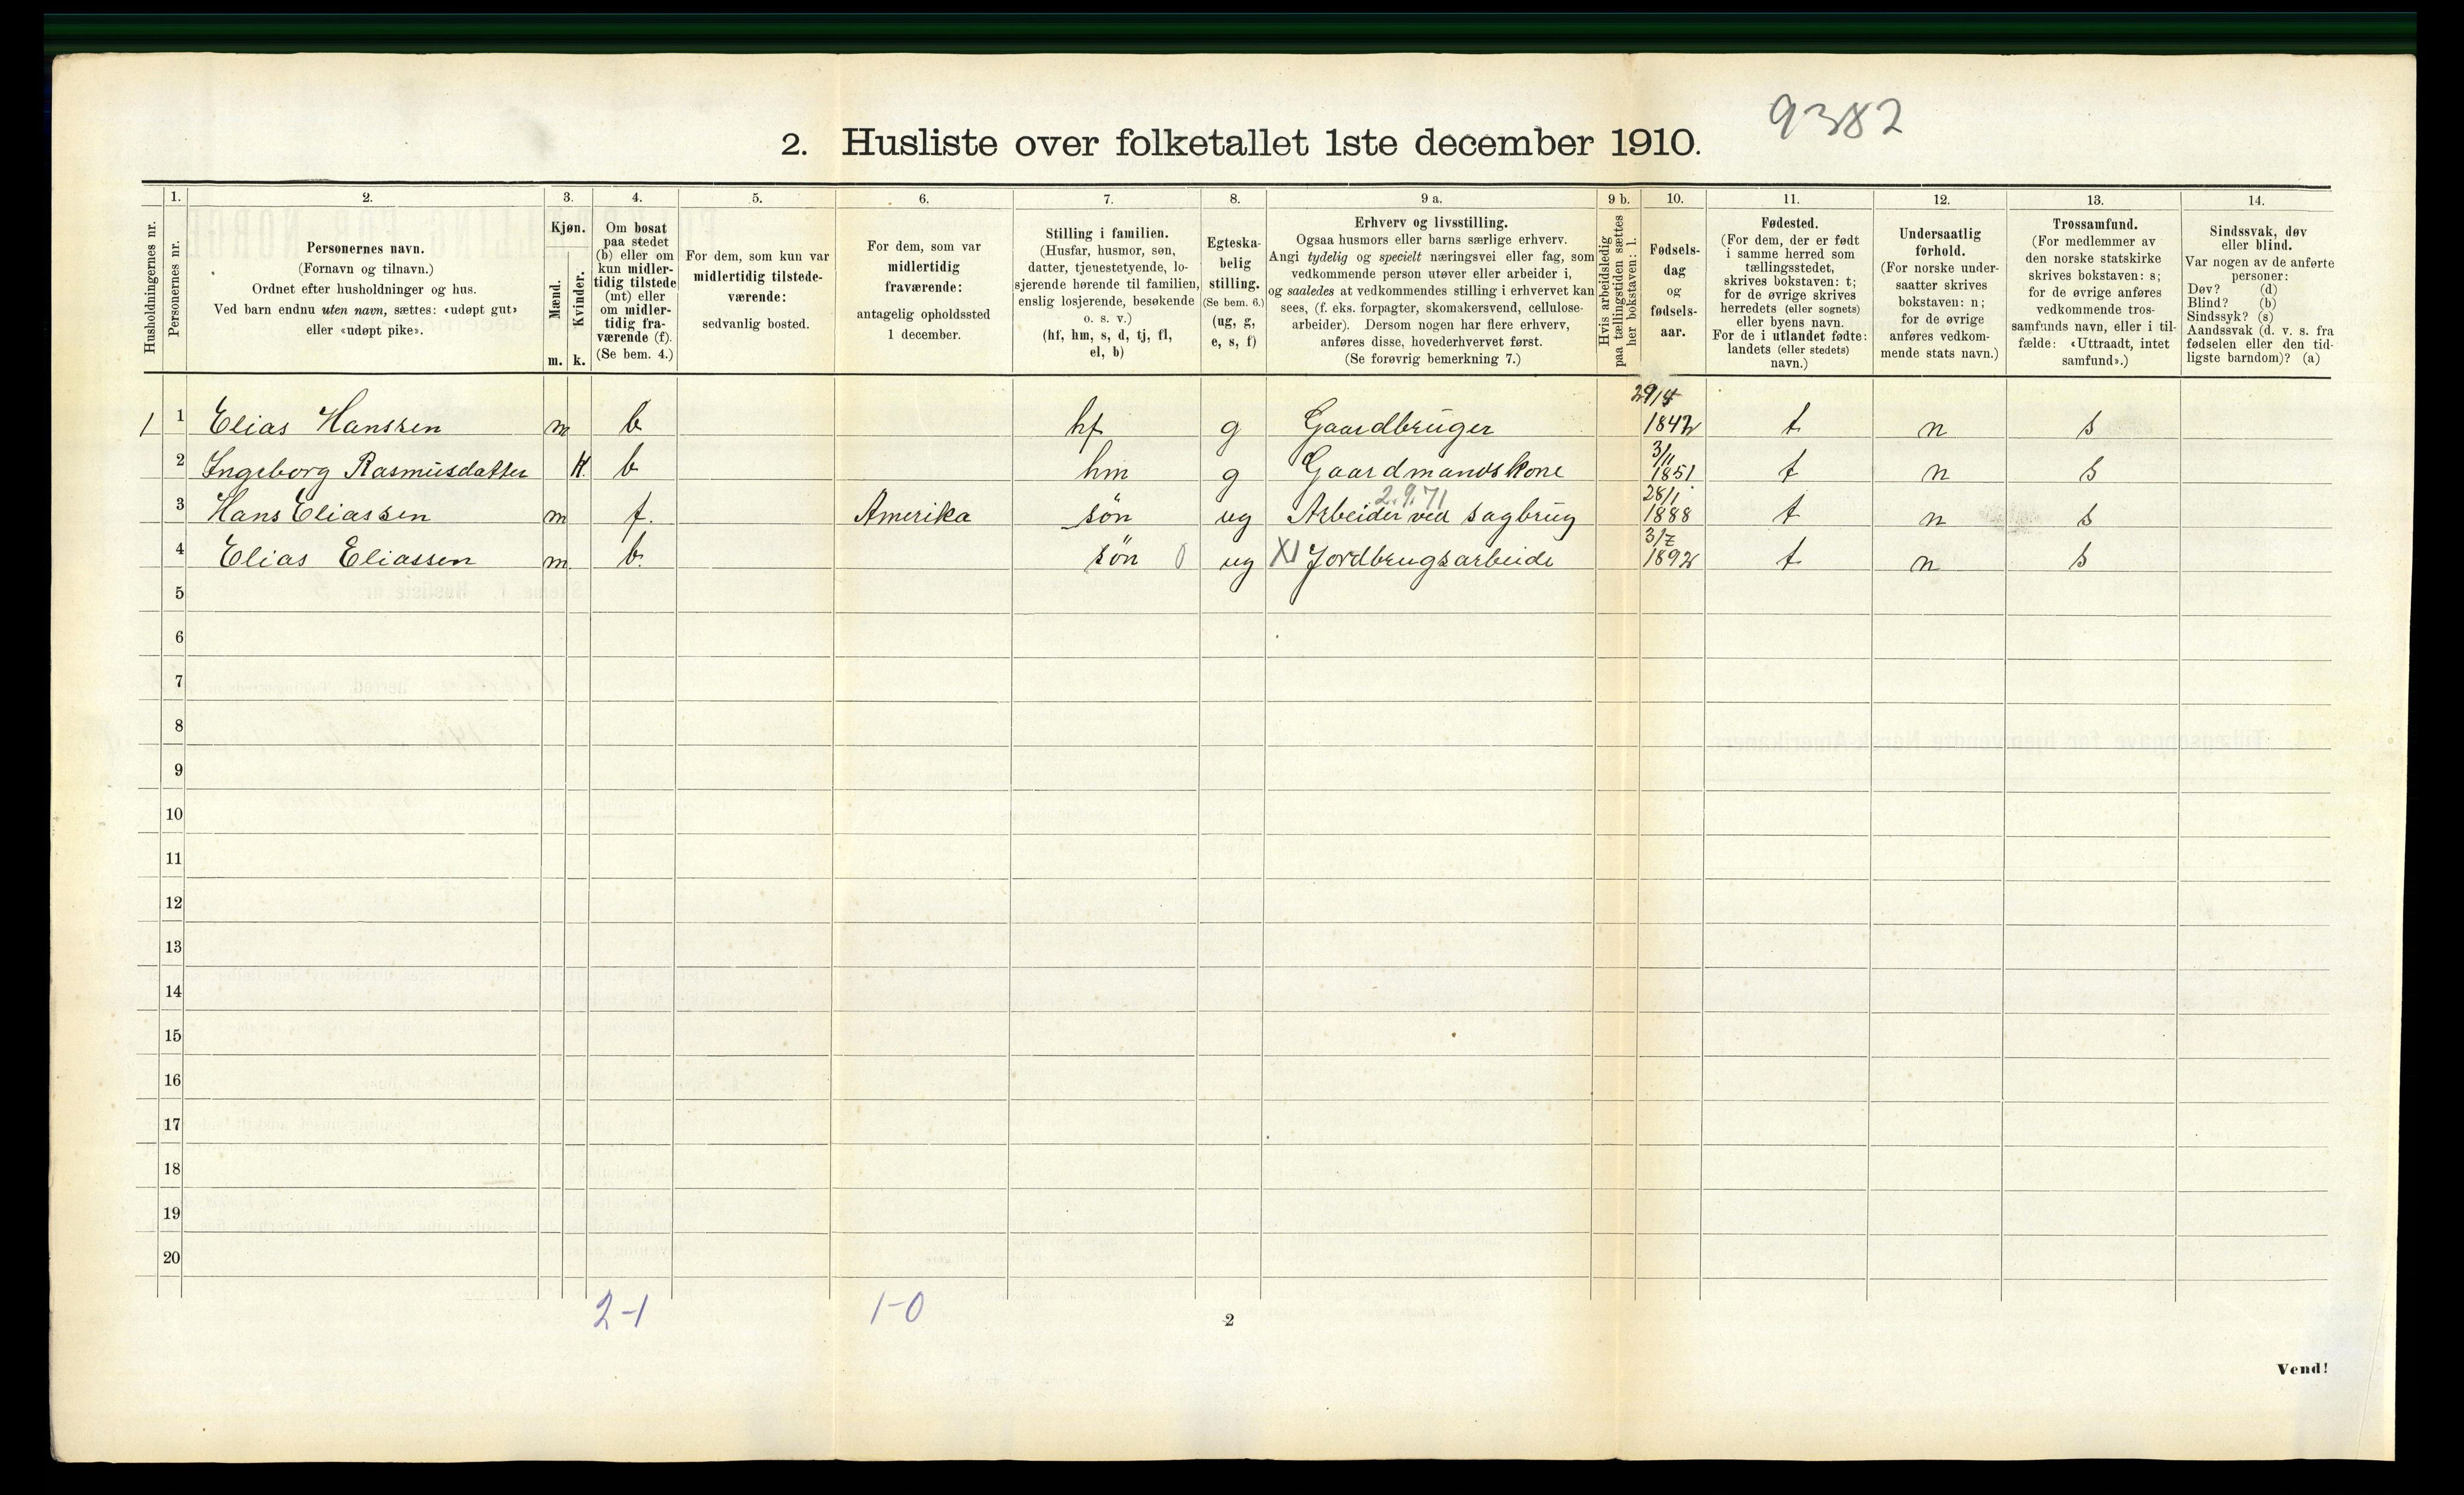 9382
2. Husliste over folketallet 1ste december 1910.
Husholdningernes nr.
1.
Personernes nr.
2.
Personernes navn.
(Fornavn og tilnavn.)
Ordnet efter husholdninger og hus.
Ved barn endnu uten navn, sættes: «udøpt gut»
eller «udøpt pike».
3.
Kjøn.
Mænd.
Kvinder.
m. k.
4.
Om bosat
paa stedet
(b) eller om
kun midler-
tidig tilstede
(mt) eller
om midler-
tidig fra-
værende (f).
(Se bem. 4.)
5.
For dem, som kun var
midlertidig tilstede-
værende:
sedvanlig bosted.
6.
For dem, som var
midlertidig
fraværende:
antagelig opholdssted
1 december.
7.
Stilling i familien.
(Husfar, husmor, søn,
datter, tjenestetyende, lo-
sjerende hørende til familien,
enslig losjerende, besøkende
o. s. v.)
(hf, hm, s, d, tj, fl,
el, b)
8.
Egteska-
belig
stilling.
(Se bem. 6.)
(ug, g,
e, s, f)
9 a.
Erhverv og livsstilling.
Ogsaa husmors eller barns særlige erhverv.
Angi tydelig og specielt næringsvei eller fag, som
vedkommende person utøver eller arbeider i,
og saaledes at vedkommendes stilling i erhvervet kan
sees, (f. eks. forpagter, skomakersvend, cellulose-
arbeider). Dersom nogen har flere erhverv,
anføres disse, hovederhvervet først.
(Se forøvrig bemerkning 7.)
9 b.
Hvis arbeidsledig
paa tællingstiden sættes
her bokstaven: l.
10.
Fødsels-
dag
og
fødsels-
aar.
11.
Fødested.
(For dem, der er født
i samme herred som
tællingsstedet,
skrives bokstaven: t;
for de øvrige skrives
herredets (eller sognets)
eller byens navn.
For de i utlandet fødte:
landets (eller stedets)
navn.)
12.
Undersaatlig
forhold.
(For norske under-
saatter skrives
bokstaven: n;
for de øvrige
anføres vedkom-
mende stats navn.)
13.
Trossamfund.
(For medlemmer av
den norske statskirke
skrives bokstaven: s;
for de øvrige anføres
vedkommende tros-
samfunds navn, eller i til-
fælde: «Uttraadt, intet
samfund».)
14.
Sindssvak, døv
eller blind.
Var nogen av de anførte
personer:
Døv? (d)
Blind? (b)
Sindssyk? (s)
Aandssvak (d. v. s. fra
fødselen eller den tid-
ligste barndom)? (a)
1 1 Elias Hanssen m b hf g Gaardbruger 1842 t n s
2 Ingeborg Rasmusdatter K. b hm g Gaardmandskone 3/11 1851 t n s
3 Hans Eliassen m f. Amerika søn ug Arbeider ved sagbrug 2.9.71 28/1 1888 t n s
4 Elias Eliassen m. b. søn 0 ug Jordbrugsarbeide 1892 t n s
5
6
7
8
9
10
11
12
13
14
15
16
17
18
19
20
2-1 1-0
2
Vend!